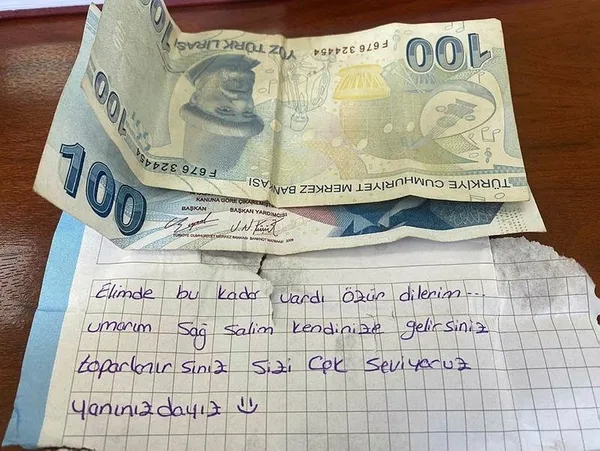 100
YÜZ TÜRK LİRASI
F676 324454
TÜRKİYE CUMHURİYET MERKEZ BANKASI
100
F676 324454
100
KANUNA GÖRE ÇIKARILMIŞTIR
BAŞKAN BAŞKAN YARDIMCISI
TÜRKİYE CUMHURİYET MERKEZ BANKASI BANKNOT MATBAASI 2009
Elimde bu kadar vardı özür dilerim...
umarım sağ salim kendinize gelirsiniz
toparlanırsınız sizi çok seviyoruz
yanınızdayız